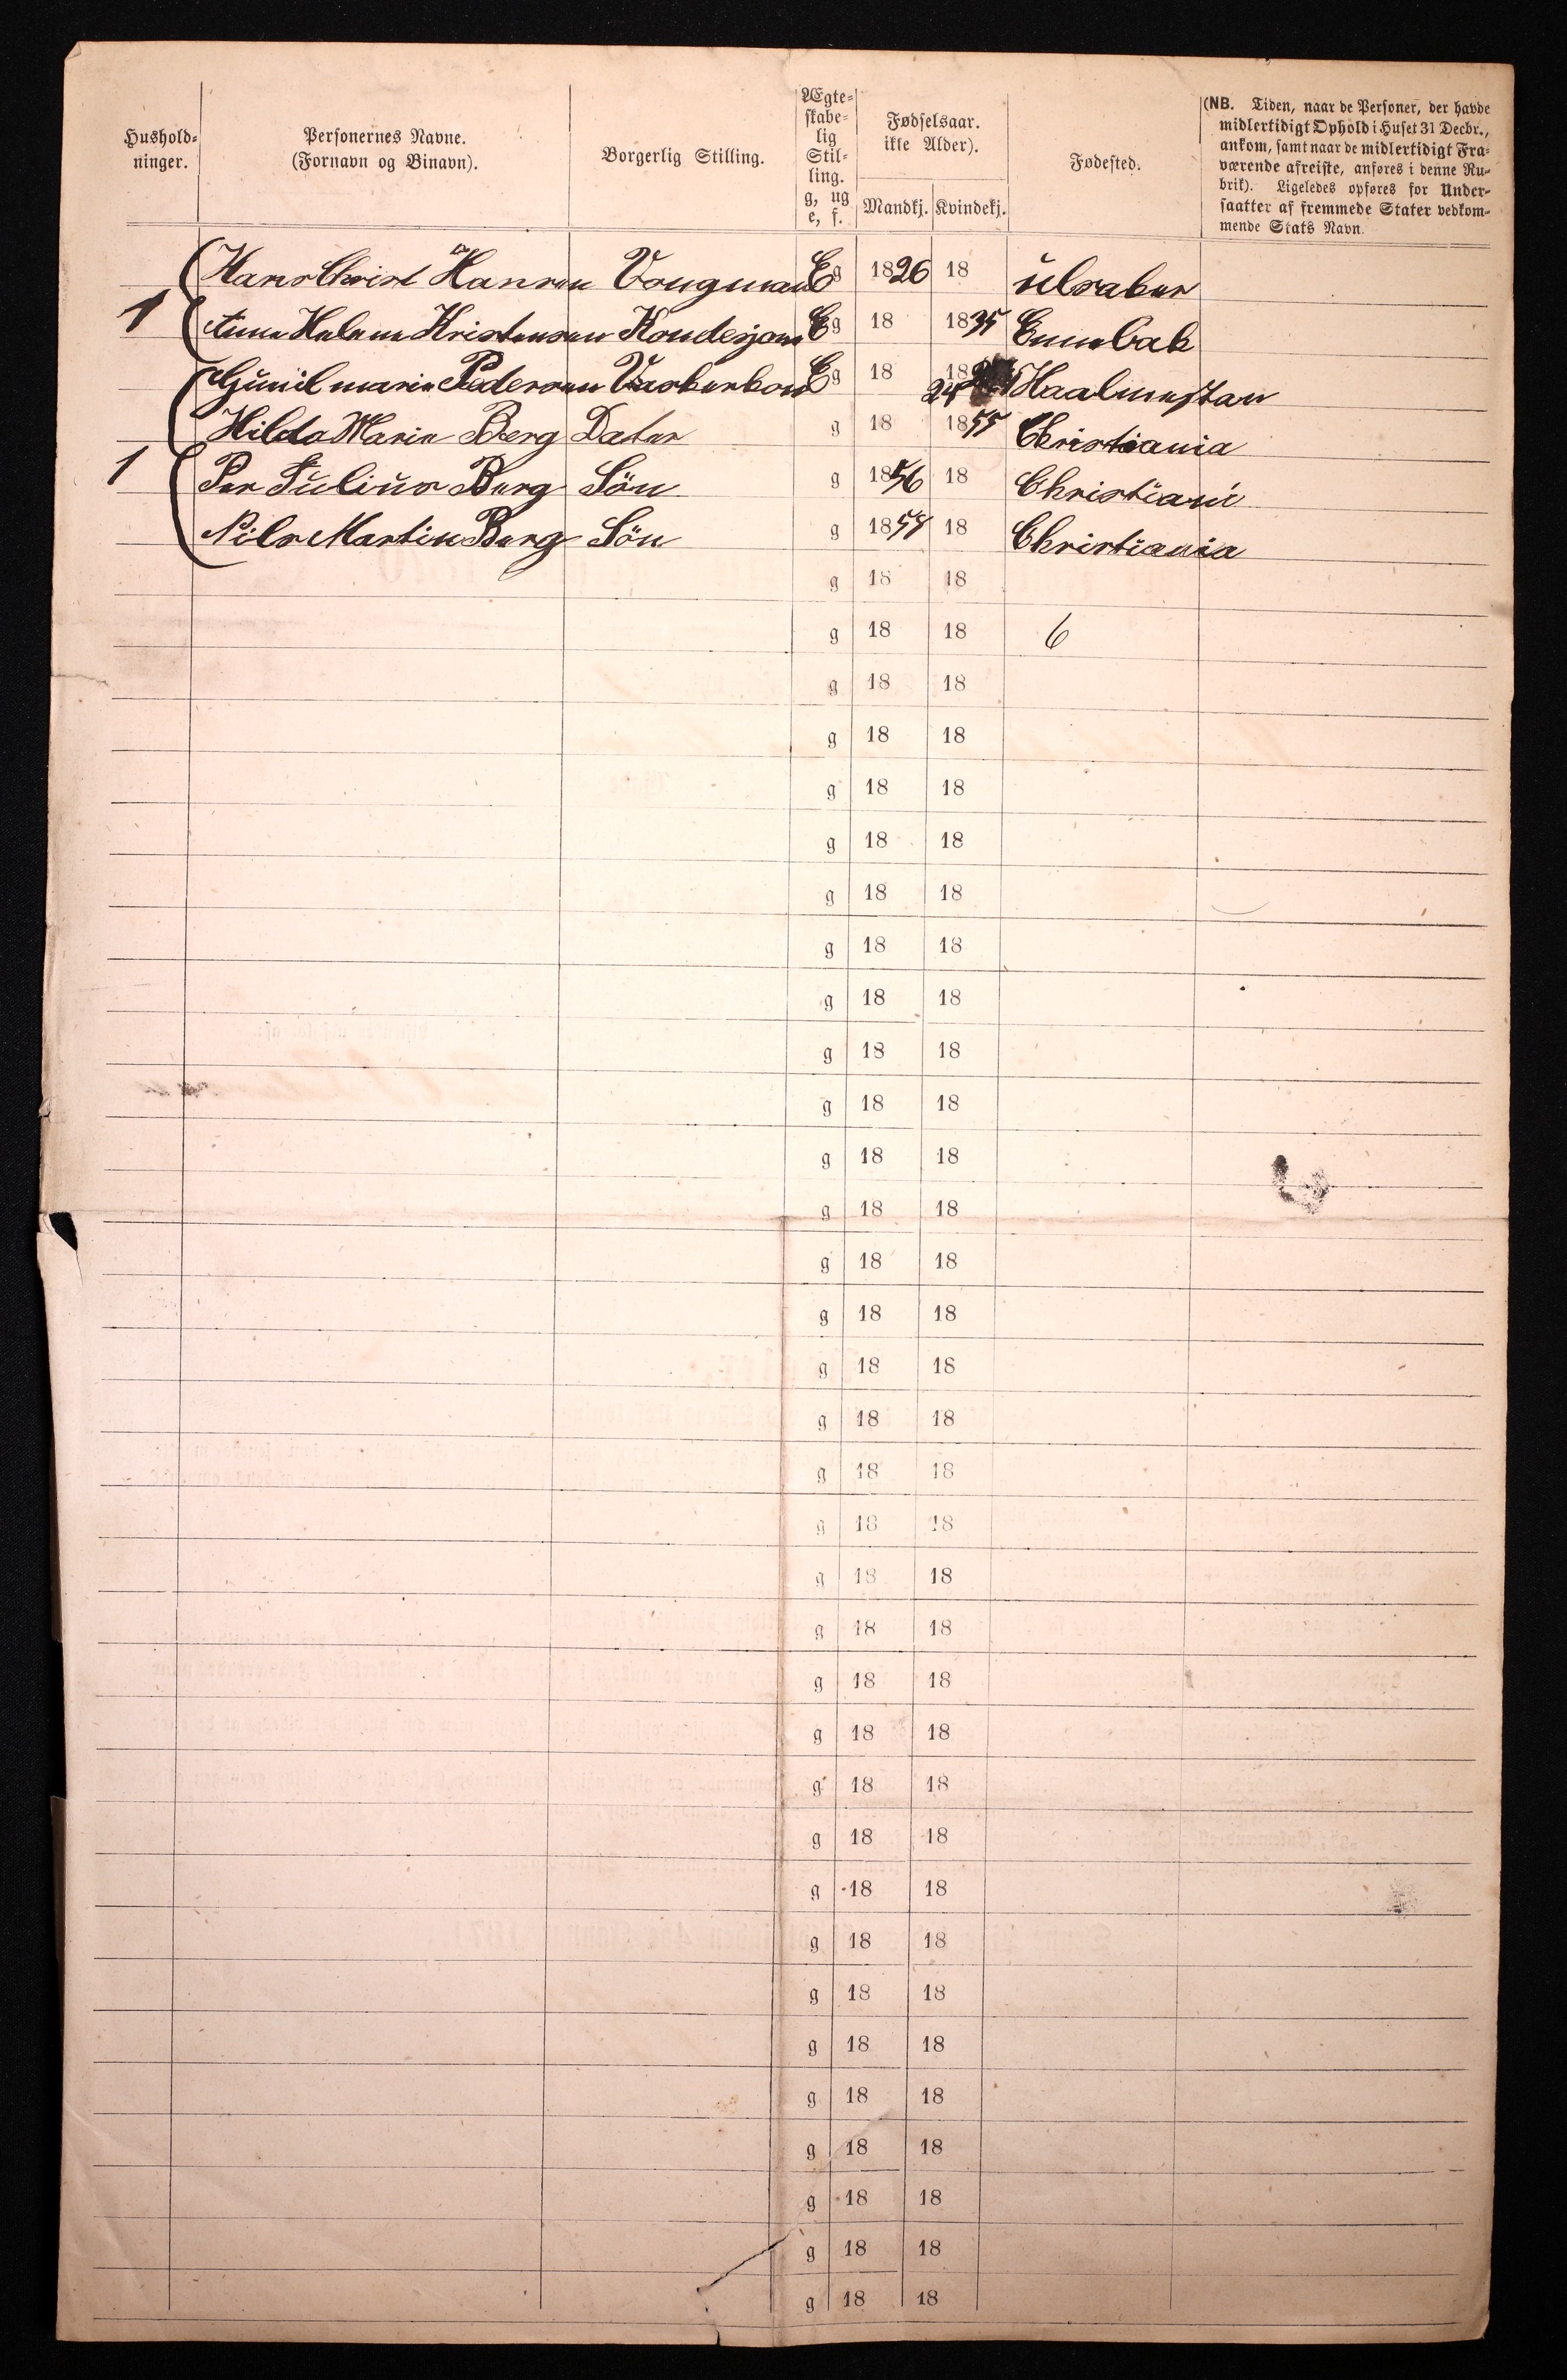 Hushold-
ninger.
Personernes Navne.
(Fornavn og Binavn).
Borgerlig Stilling.
Ægte-
skabe-
lig
Stil-
ling.
g, ug
e, f.
Fødselsaar.
ikke Alder).
Mandkj. Kvindekj.
Fødested.
(NB. Tiden, naar de Personer, der havde
midlertidigt Ophold i Huset 31 Decbr.,
ankom, samt naar de midlertidigt Fra-
værende afreiste, anføres i denne Ru-
brik). Ligeledes opføres for Under-
saatter af fremmede Stater vedkom-
mende Stats Navn.
Hans Christ Hansen Vongmand E g 1826 18 Ulsaker
1 Anna Helene Kristensen Kondesjone E g 18 1835 Ennebak
Gunil marie Pedersen Vaskerkone E g 18 18 24 Haalmestan
Hilda Marie Berg Dater g 18 1855 Christiania
1 Per Julius Berg Sön g 1856 18 Christiani
Nils Martin Berg Sön g 1859 18 Christiania
g 18 18
g 18 18 6
g 18 18
g 18 18
g 18 18
g 18 18
g 18 18
g 18 18
g 18 18
g 18 18
g 18 18
g 18 18
g 18 18
g 18 18
g 18 18
g 18 18
g 18 18
g 18 18
g 18 18
g 18 18
g 18 18
g 18 18
g 18 18
g 18 18
g 18 18
g 18 18
g 18 18
g 18 18
g 18 18
g 18 18
g 18 18
g 18 18
g 18 18
g 18 18